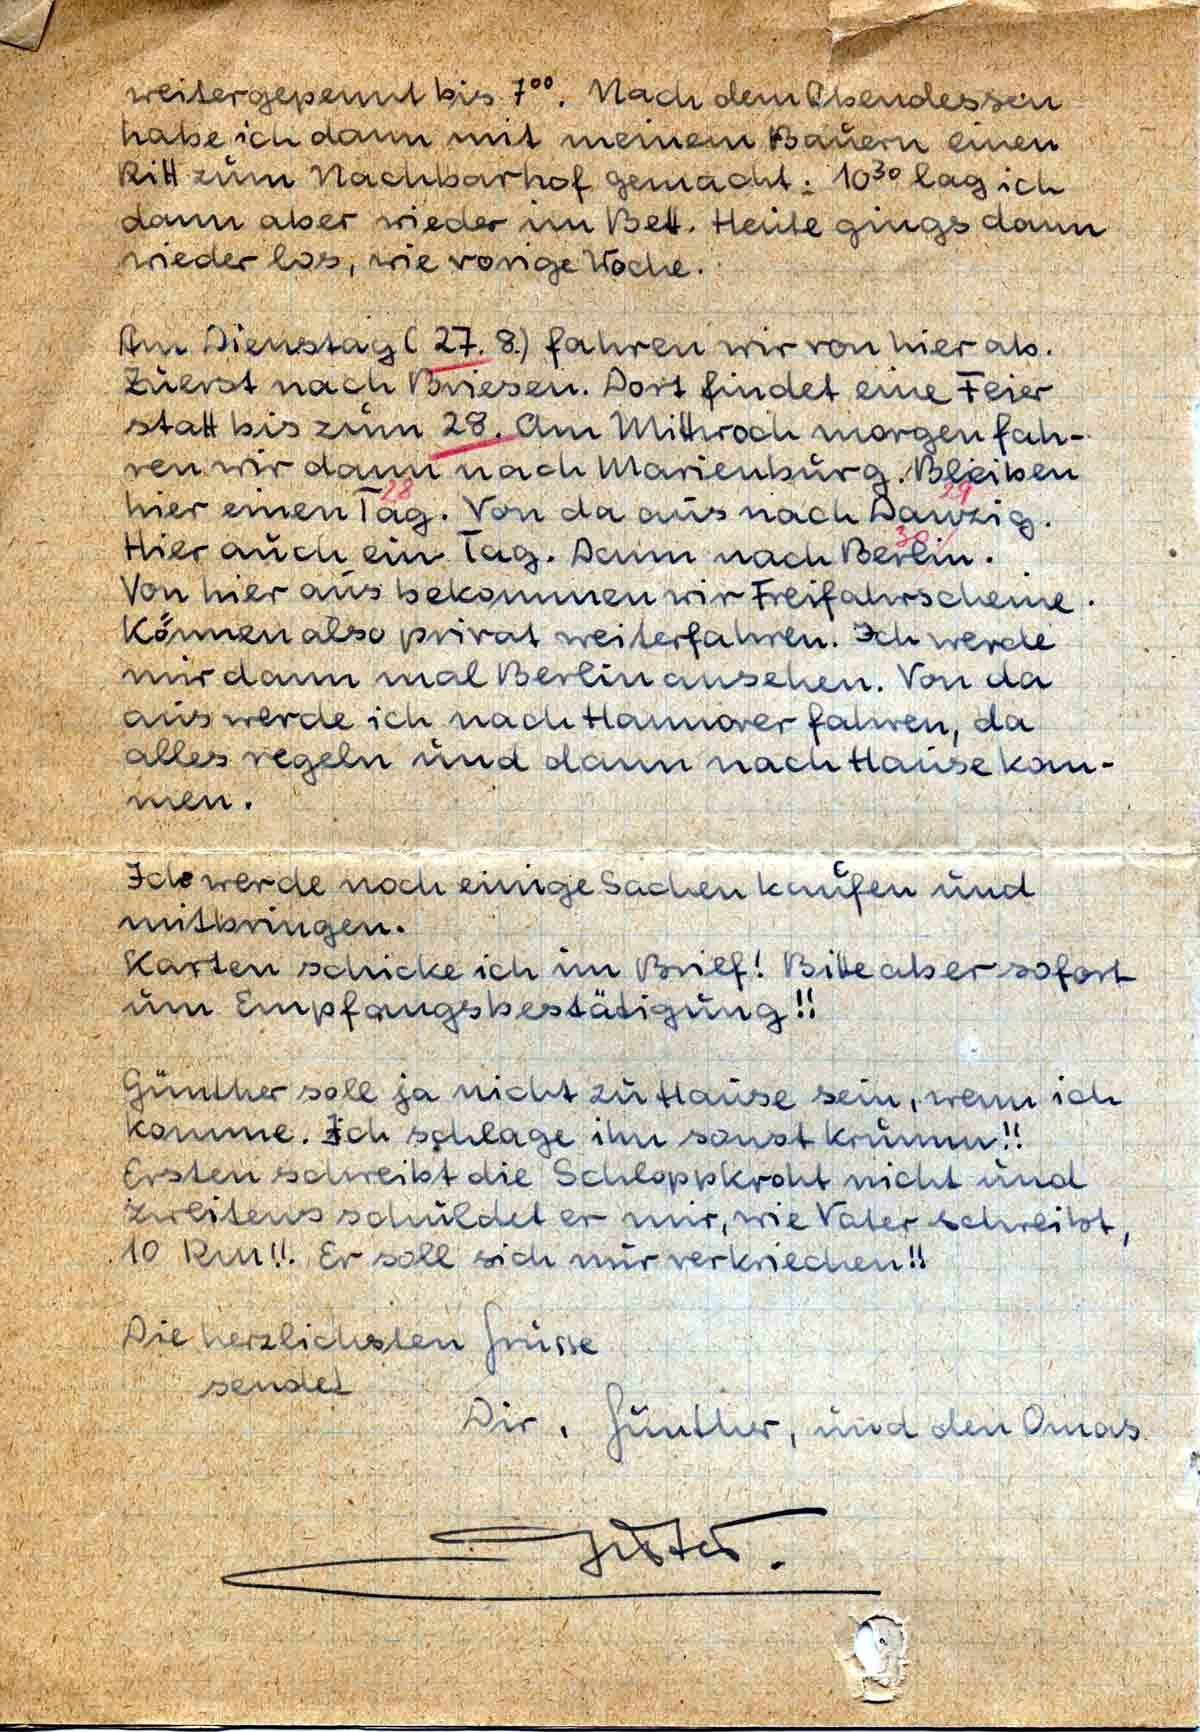 weitergepennt bis 7⁰⁰. Nach dem Abendessen
habe ich dann mit meinem Bauern einen
Ritt zum Nachbarhof gemacht. 10³⁰ lag ich
dann aber wieder im Bett. Heute gings dann
wieder los, wie vorige Woche.
Am Dienstag (27. 8.) fahren wir von hier ab.
Zuerst nach Briesen. Dort findet eine Feier
statt bis zum 28. Am Mittwoch morgen fah-
ren wir dann nach Marienburg. Bleiben
28 29
hier einen Tag. Von da aus nach Danzig.
30
Hier auch ein Tag. Dann nach Berlin.
Von hier aus bekommen wir Freifahrscheine.
Können also privat weiterfahren. Ich werde
mir dann mal Berlin ansehen. Von da
aus werde ich nach Hannover fahren, da
alles regeln und dann nach Hause kom-
men.
Ich werde noch einige Sachen kaufen und
mitbringen.
Karten schicke ich im Brief! Bitte aber sofort
um Empfangsbestätigung!!
Günther soll ja nicht zu Hause sein, wenn ich
komme. Ich schlage ihn sonst krumm!!
Ersten schreibt die Schloppkroht nicht und
zweitens schuldet er mir, wie Vater schreibt,
10 Rm!!. Er soll sich nur verkriechen!!
Die herzlichsten Grüsse
sendet
Dir, Günther, und den Omas